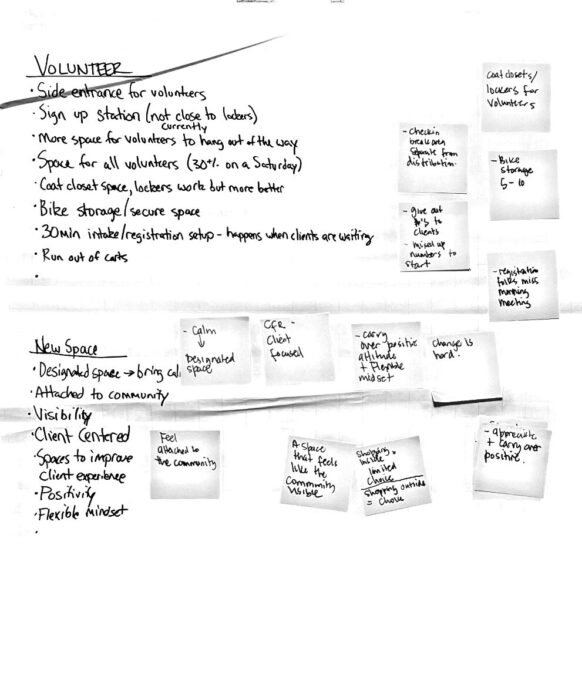 VOLUNTEER
· Side entrance for volunteers
· Sign up station (not close to lockers)
currently
· More space for volunteers to hang out of the way
· Space for all volunteers (30+/- on a Saturday)
· Coat closet space, lockers work but more better
· Bike storage/secure space
· 30min intake/registration setup - happens when clients are waiting
· Run out of carts
·
Coat closets/
lockers for
Volunteers
- Checkin
break area
separate from
distribution.
- Bike
storage
5-10
- give out
#'s to
clients
- mixed up
numbers to
start
- registration
folks miss
morning
meeting
New Space
· Designated space → bring cal
· Attached to community
· Visibility
· Client Centered
· Spaces to improve
client experience
· Positivity
· Flexible mindset
·
- Calm
↓
Designated
space
CFR -
Client
Focused
- carry
over positive
attitude
+ flexible
midset
change is
hard.
Feel
attached to
the community
A space
that feels
like the
community
visible
Shopping
inside =
limited
choice
shopping outside
= choice
- appreciate
+ carry over
positive.